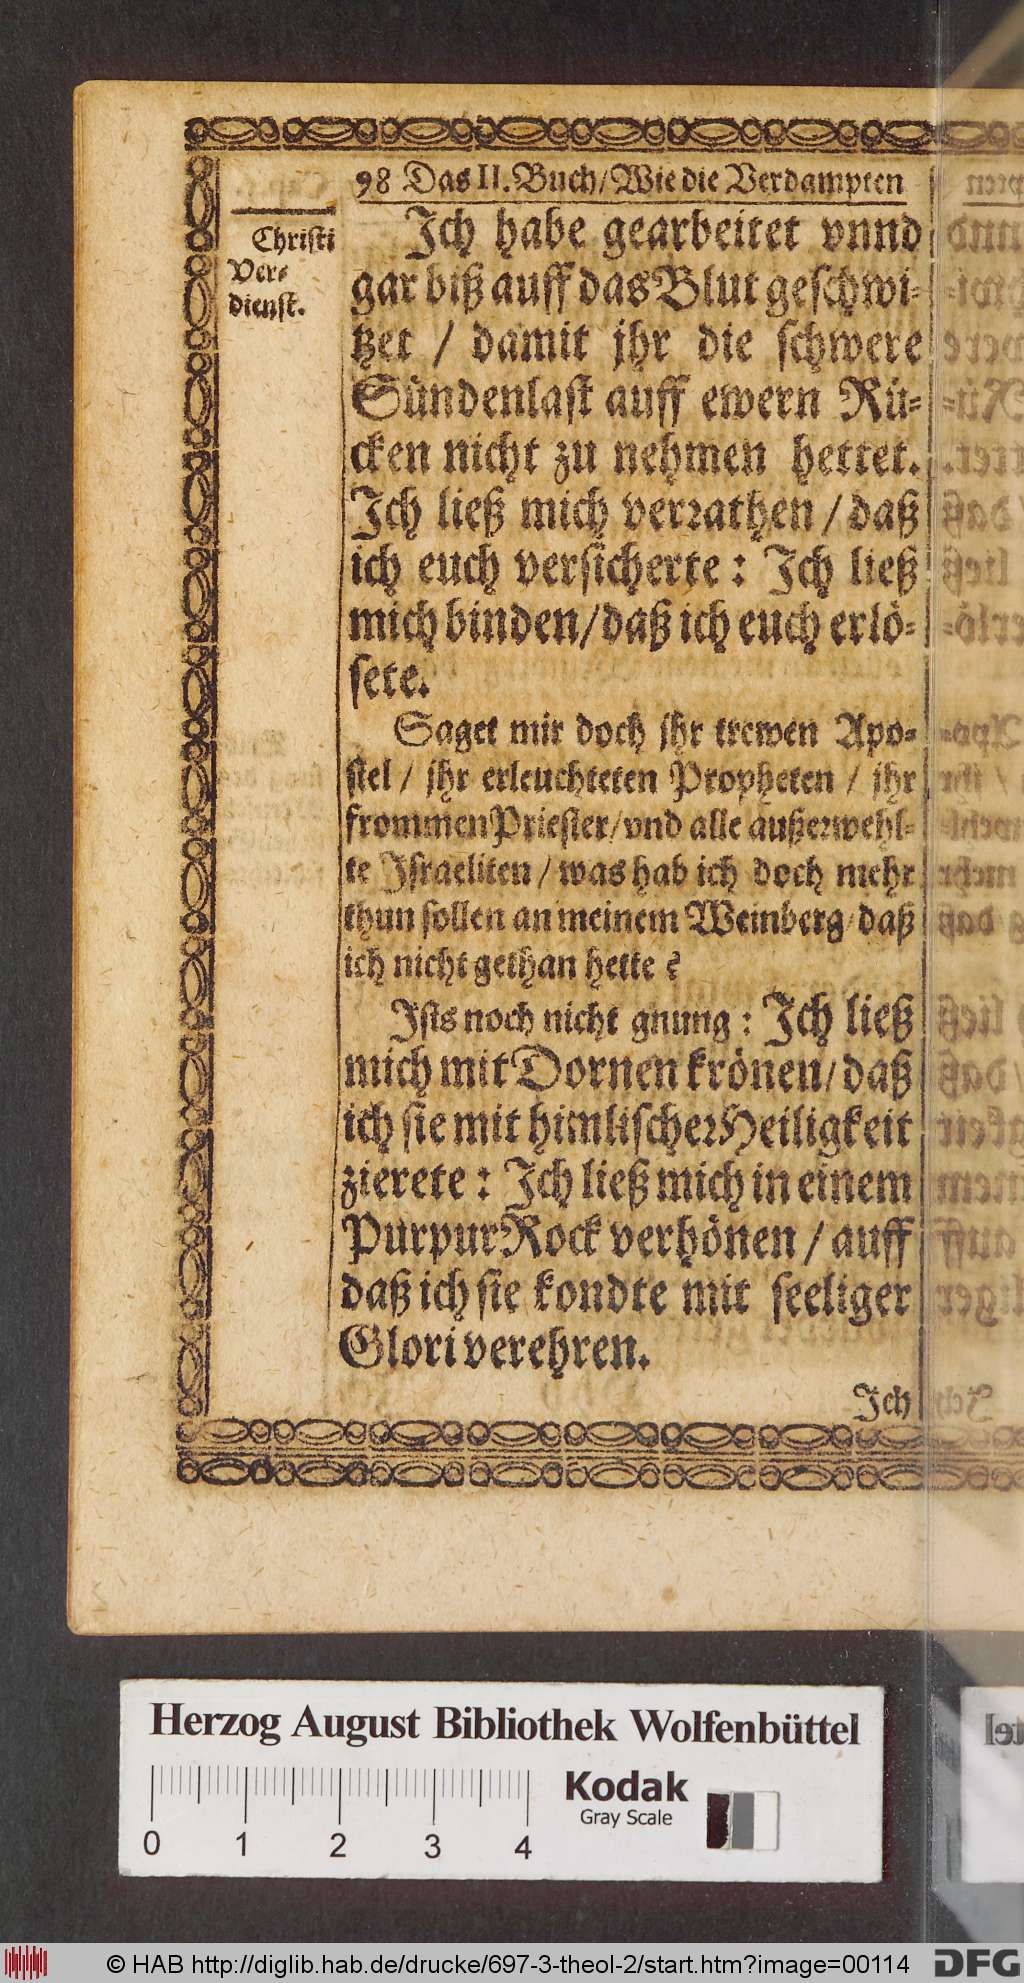 98 Das II. Buch/ Wie die Verdampten
Christi
Ver-
dienst.
Ich habe gearbeitet vnnd
gar biß auff das Blut geschwi-
tzet / damit jhr die schwere
Sündenlast auff ewern Rü-
cken nicht zu nehmen hettet.
Ich ließ mich verrathen / daß
ich euch versicherte : Ich ließ
mich binden/ daß ich euch erlö-
sete.
Saget mir doch jhr trewen Apo-
stel / jhr erleuchteten Propheten / jhr
frommen Priester/ vnd alle außerwehl-
te Israeliten / was hab ich doch mehr
thun sollen an meinem Weinberg/ daß
ich nicht gethan hette ?
Ists noch nicht gnung : Ich ließ
mich mit Dornen krönen/ daß
ich sie mit himlischer Heiligkeit
zierete : Ich ließ mich in einem
PurpurRock verhönen / auff
daß ich sie kondte mit seeliger
Glori verehren.
Ich
Herzog August Bibliothek Wolfenbüttel
Kodak
Gray Scale
0 1 2 3 4
© HAB http://diglib.hab.de/drucke/697-3-theol-2/start.htm?image=00114
DFG